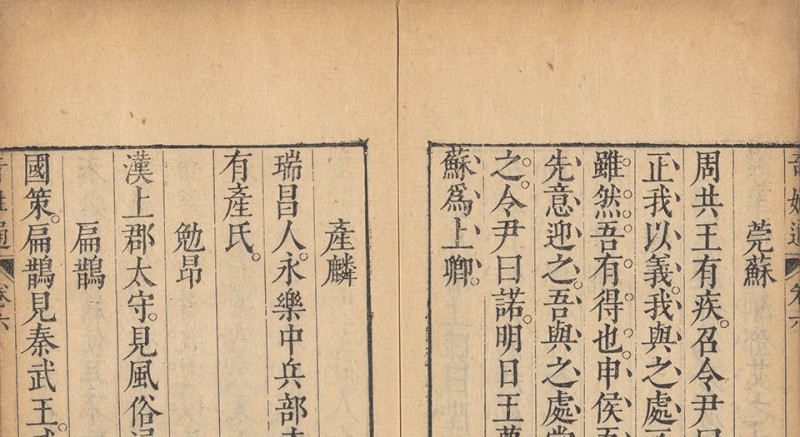 奇姓通 卷六
莞蘇
周共王有疾。召令尹曰
正我以義。我與之處不
雖然。吾有得也。申侯
先意迎之。吾與之處常
之。令尹曰諾。明日王薨
蘇爲上卿。
產麟
瑞昌人。永樂中兵部
有產氏。
勉昂
漢上郡太守。見風俗通
扁鵲
國策。扁鵲見秦武王。
奇姓通 卷六